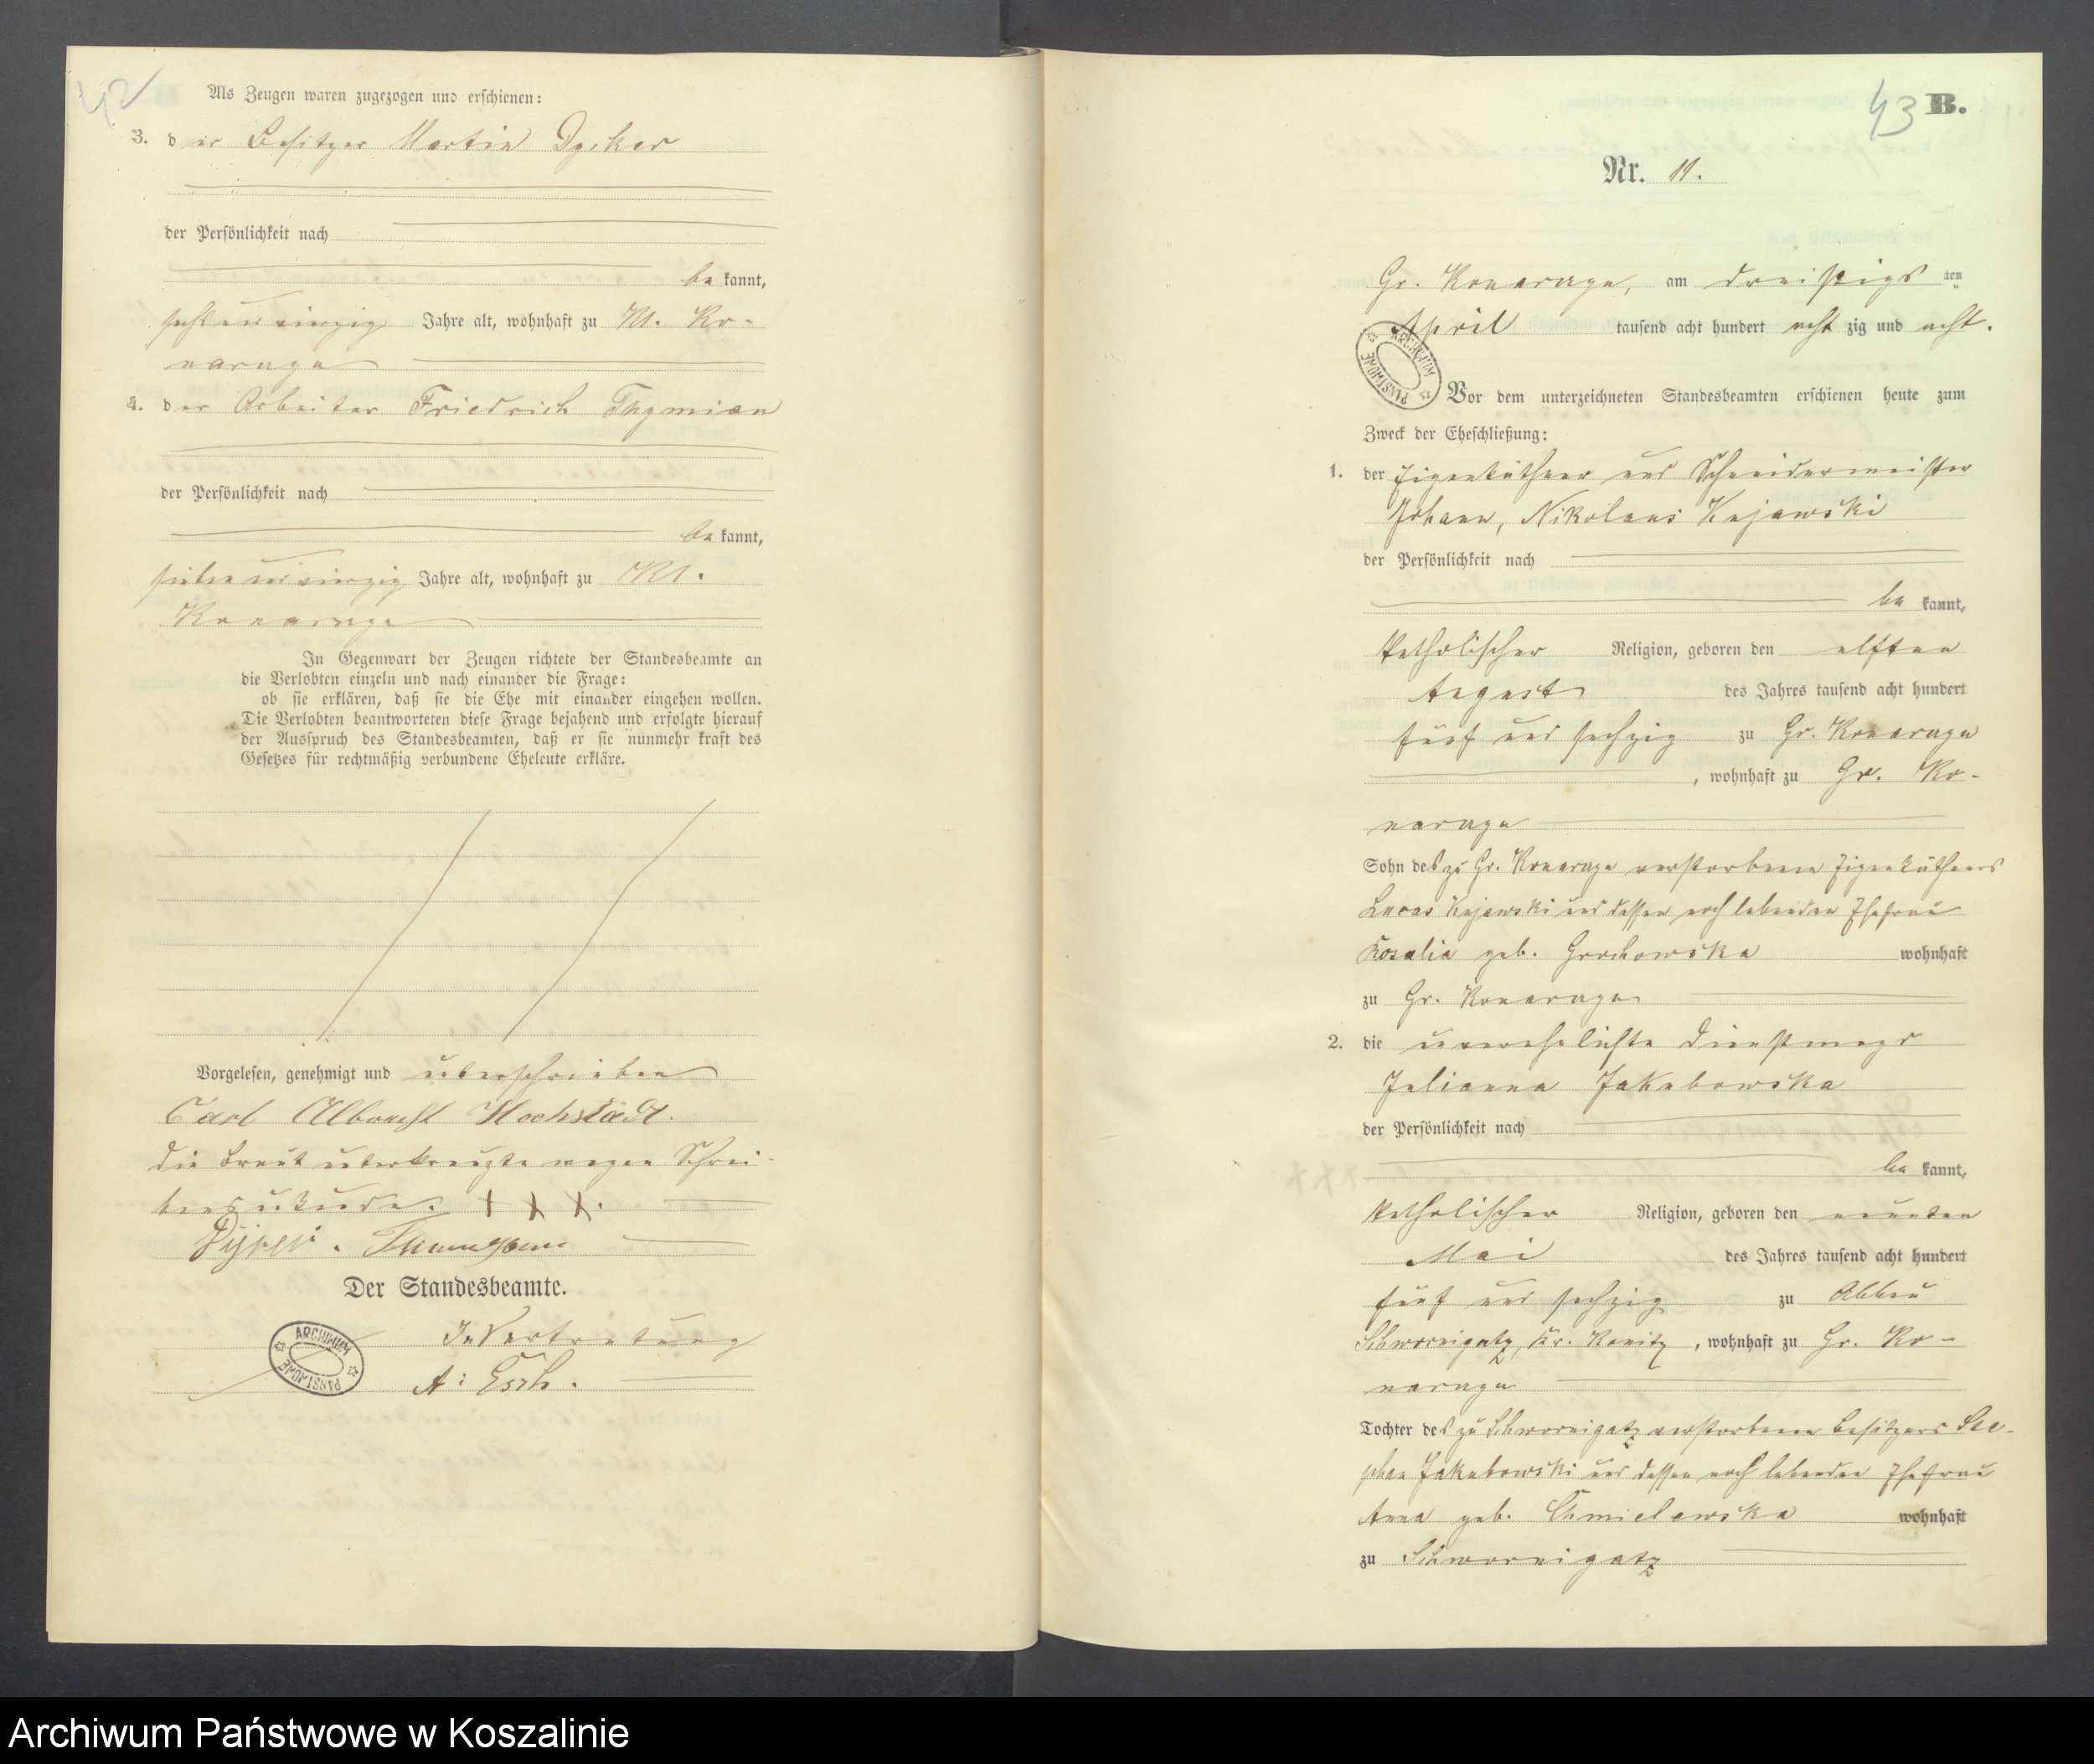 42
Als Zeugen waren zugezogen und erschienen:
3. der Besitzer Martin Dycker
der Persönlichkeit nach
bekannt,
Jahre alt, wohnhaft zu Kl. Ko-
narczyn
4. der Arbeiter Friedrich Thymian
der Persönlichkeit nach
bekannt,
siebenundvierzig Jahre alt, wohnhaft zu Kl.
Konarczyn
In Gegenwart der Zeugen richtete der Standesbeamte an
die Verlobten einzeln und nach einander die Frage:
ob sie erklären, daß sie die Ehe mit einander eingehen wollen.
Die Verlobten beantworteten diese Frage bejahend und erfolgte hierauf
der Ausspruch des Standesbeamten, daß er sie nunmehr kraft des
Gesetzes für rechtmäßig verbundene Eheleute erkläre.
Vorgelesen, genehmigt und unterschrieben
Carl Albrecht Hochstädt.
Die Braut unterkreuzte wegen Schrei-
bensunkunde. + + +.
Der Standesbeamte.
In Vertretung
A: Esch.
ARCHIWUM PAŃSTWOWE
43 B.
Nr. 11.
Gr. Konarczyn, am dreißigsten
April tausend acht hundert achtzig und acht.
ARCHIWUM PAŃSTWOWE
Vor dem unterzeichneten Standesbeamten erschienen heute zum
Zweck der Eheschließung:
1. der Eigenkäthner und Schneidermeister
Johann, Nikolaus Kujawski
der Persönlichkeit nach
bekannt,
katholischer Religion, geboren den elften
August des Jahres tausend acht hundert
fünf und sechzig zu Gr. Konarczyn
, wohnhaft zu Gr. Ko-
narczyn
Sohn des zu Gr. Konarczyn verstorbenen Eigenkäthners
Lucas Kujawski und dessen noch lebenden Ehefrau
Rosalia geb. Grochowska wohnhaft
zu Gr. Konarczyn
2. die unverehelichte Dienstmagd
Julianna Jakubowska
der Persönlichkeit nach
bekannt,
katholischer Religion, geboren den neunten
Mai des Jahres tausend acht hundert
fünf und sechzig zu Abbau
Schwornigatz, Kr. Konitz, wohnhaft zu Gr. Ko-
narczyn
Tochter des zu Schwornigatz verstorbenen Besitzers Ste-
phan Jakubowski und dessen noch lebenden Ehefrau
Anna geb. Chmielewska wohnhaft
zu Schwornigatz
Archiwum Państwowe w Koszalinie